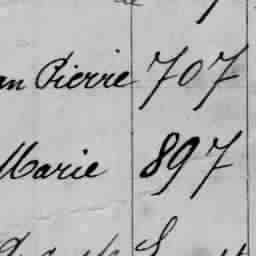 an Pierre 707
Marie 897